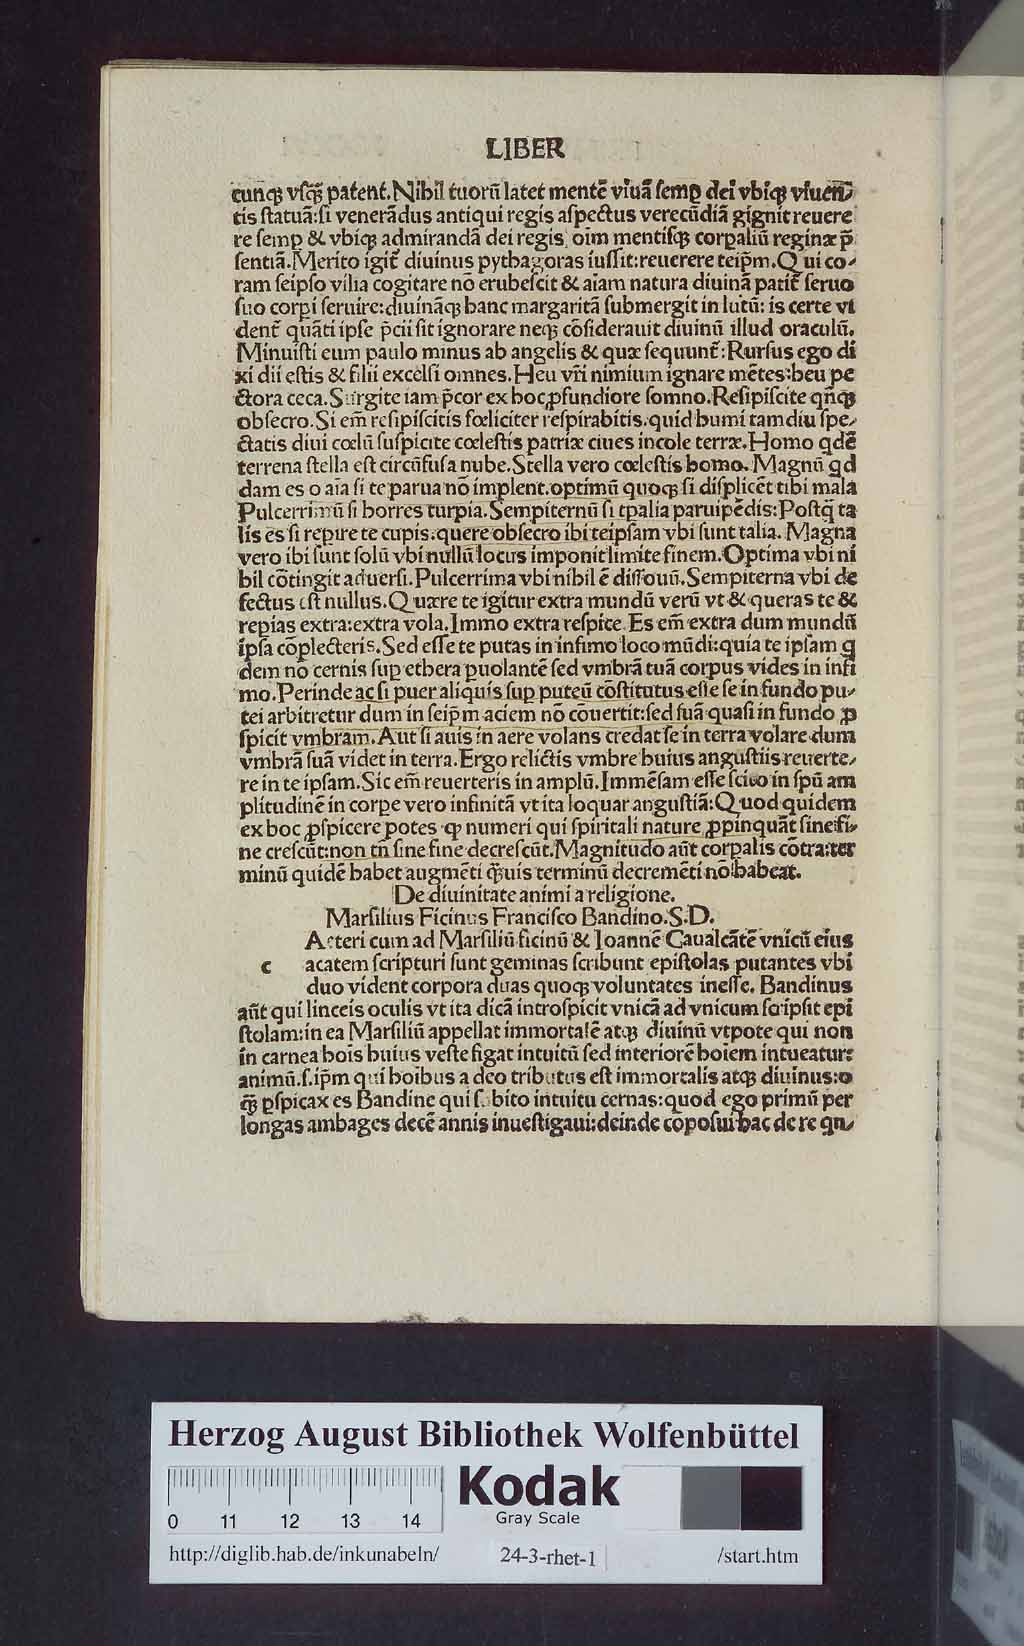 LIBER
cunqꝫ vſqꝫ patent. Nihil tuorū latet mentē viuā ſemꝑ dei vbiqꝫ viuen⸗
tis ſtatuā: ſi venerādus antiqui regis aſpectus verecūdiā gignit reuere
re ſemꝑ & vbiqꝫ admirandā dei regis oīm mentiſqꝫ corꝑaliū reginæ p̄
ſentiā. Merito igit̄ diuinus pythagoras iuſſit: reuerere teip̄m. Qui co⸗
ram ſeipſo vilia cogitare nō erubeſcit & aīam natura diuinā patit̄ ſeruo
ſuo corꝑi ſeruire: diuināqꝫ hanc margaritā ſubmergit in lutū: is certe vi
dent̄ quāti ipſe p̄cii ſit ignorare neqꝫ cōſiderauit diuinū illud oraculū.
Minuiſti eum paulo minus ab angelis & quæ ſequunt̄: Rurſus ego di
xi dii eſtis & filii excelſi omnes. Heu vr̄i nimium ignare mētes: heu pe
ctora ceca. Surgite iam p̄cor ex hoc ꝓfundiore ſomno. Reſipiſcite qn̄qꝫ
obſecro. Si em̄ reſipiſcitis fœliciter reſpirabitis. quid humi tamdiu ſpe⸗
ctatis diui cœlū ſuſpicite cœleſtis patriæ ciues incole terræ. Homo qdē
terrena ſtella eſt circūfuſa nube. Stella vero cœleſtis homo. Magnū qd
dam es o aīa ſi te parua nō implent. optimū quoqꝫ ſi diſplicēt tibi mala
Pulcerrimū ſi horres turpia. Sempiternū ſi tꝑalia paruipēdis: Poſtq̄ ta
lis es ſi reꝑire te cupis: quere obſecro ibi teipſam vbi ſunt talia. Magna
vero ibi ſunt ſolū vbi nullū locus imponit limite finem. Optima vbi ni
hil cōtingit aduerſi. Pulcerrima vbi nihil ē diſſouū. Sempiterna vbi de
fectus eſt nullus. Quære te igitur extra mundū verū vt & queras te &
reꝑias extra: extra vola. Immo extra reſpice. Es em̄ extra dum mundū
ipſa cōplecteris. Sed eſſe te putas in infimo loco mūdi: quia te ipſam q
dem nō cernis ſuꝑ ethera ꝑuolantē ſed vmbrā tuā corpus vides in infi
mo. Perinde ac ſi puer aliquis ſuꝑ puteū cōſtitutus eſſe ſe in fundo pu⸗
tei arbitretur dum in ſeip̄m aciem nō cōuertit: ſed ſuā quaſi in fundo ꝓ
ſpicit vmbram. Aut ſi auis in aere volans credat ſe in terra volare dum
vmbrā ſuā videt in terra. Ergo relictis vmbre huius anguſtiis reuerte⸗
re in te ipſam. Sic em̄ reuerteris in amplū. Immēſam eſſe ſcito in ſpū am
plitudinē in corꝑe vero infinitā vt ita loquar anguſtiā: Quod quidem
ex hoc ꝓſpicere potes ꝙ numeri qui ſpiritali nature ꝓpinquāt ſine fi⸗
ne creſcūt: non tn̄ ſine fine decreſcūt. Magnitudo aūt corꝑalis cōtra: ter
minū quidē habet augmēti q̄uis terminū decremēti nō habeat.
De diuinitate animi a religione.
Marſilius Ficinus Franciſco Bandino. S. D.
Aeteri cum ad Marſiliū ficinū & Ioannē Caualcātē vnicū eius
c acatem ſcripturi ſunt geminas ſcribunt epiſtolas putantes vbi
duo vident corpora duas quoqꝫ voluntates ineſſe. Bandinus
aūt qui linceis oculis vt ita dicā introſpicit vnicā ad vnicum ſcripſit epi
ſtolam: in ea Marſiliū appellat immortalē atqꝫ diuinū vtpote qui non
in carnea hois huius veſte figat intuitū ſed interiorē hoiem intueatur:
animū. ſ. ip̄m qui hoibus a deo tributus eſt immortalis atqꝫ diuinus: o
q̄ꝫ ꝑſpicax es Bandine qui ſubito intuitu cernas: quod ego primū per
longas ambages decē annis inueſtigaui: deinde copoſui hac de re qn⸗
Herzog August Bibliothek Wolfenbüttel
Kodak
Gray Scale
0 11 12 13 14
http://diglib.hab.de/inkunabeln/ 24-3-rhet-1 /start.htm